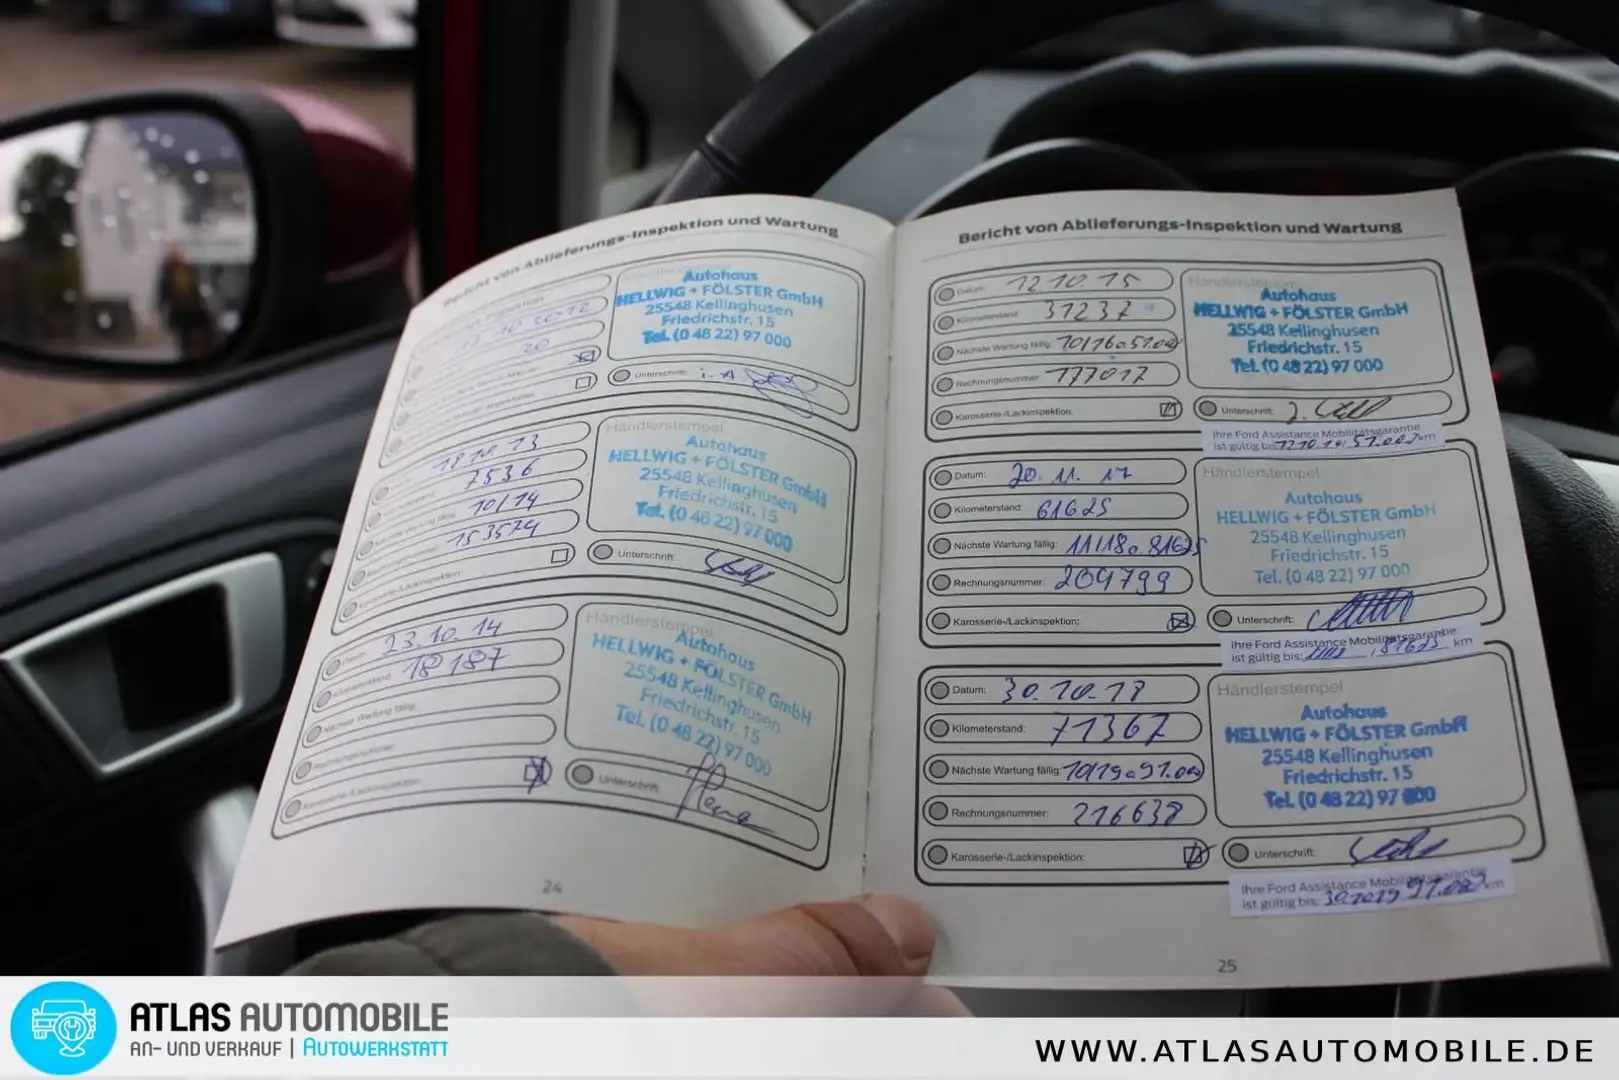 Bericht von Ablieferungs-Inspektion und Wartung
2012
20
Autohaus
HELLWIG + FÖLSTER GmbH
25548 Kellinghusen
Friedrichstr. 15
Tel. (0 48 22) 97 000
Unterschrift: i.A
18 10. 13
7536
Nächste Wartung fällig: 10/14
Rechnungsnummer: 153574
Karosserie-/Lackinspektion:
Händlerstempel
Autohaus
HELLWIG + FÖLSTER GmbH
25548 Kellinghusen
Friedrichstr. 15
Tel. (0 48 22) 97 000
Unterschrift:
Datum: 23.10.14
Kilometerstand: 18187
Nächste Wartung fällig:
Rechnungsnummer:
Karosserie-/Lackinspektion:
Händlerstempel
Autohaus
HELLWIG + FÖLSTER GmbH
25548 Kellinghusen
Friedrichstr. 15
Tel. (0 48 22) 97 000
Unterschrift:
24
Bericht von Ablieferungs-Inspektion und Wartung
Datum: 12.10.15
Kilometerstand: 31237
Nächste Wartung fällig: 10/16 o. 51.000
Rechnungsnummer: 177017
Karosserie-/Lackinspektion:
Händlerstempel
Autohaus
HELLWIG + FÖLSTER GmbH
25548 Kellinghusen
Friedrichstr. 15
Tel. (0 48 22) 97 000
Unterschrift:
Ihre Ford Assistance Mobilitätsgarantie
ist gültig bis: 51.000 km
Datum: 20.11.17
Kilometerstand: 61625
Nächste Wartung fällig: 11/18 o. 81625
Rechnungsnummer: 209799
Karosserie-/Lackinspektion:
Händlerstempel
Autohaus
HELLWIG + FÖLSTER GmbH
25548 Kellinghusen
Friedrichstr. 15
Tel. (0 48 22) 97 000
Unterschrift:
Ihre Ford Assistance Mobilitätsgarantie
ist gültig bis: 81625 km
Datum: 30.10.18
Kilometerstand: 71367
Nächste Wartung fällig: 10/19 o 91.000
Rechnungsnummer: 216638
Karosserie-/Lackinspektion:
Händlerstempel
Autohaus
HELLWIG + FÖLSTER GmbH
25548 Kellinghusen
Friedrichstr. 15
Tel. (0 48 22) 97 000
Unterschrift:
Ihre Ford Assistance Mobilitätsgarantie
ist gültig bis: 30.10.19 91.000 km
25
ATLAS AUTOMOBILE
AN- UND VERKAUF | AUTOWERKSTATT
WWW.ATLASAUTOMOBILE.DE